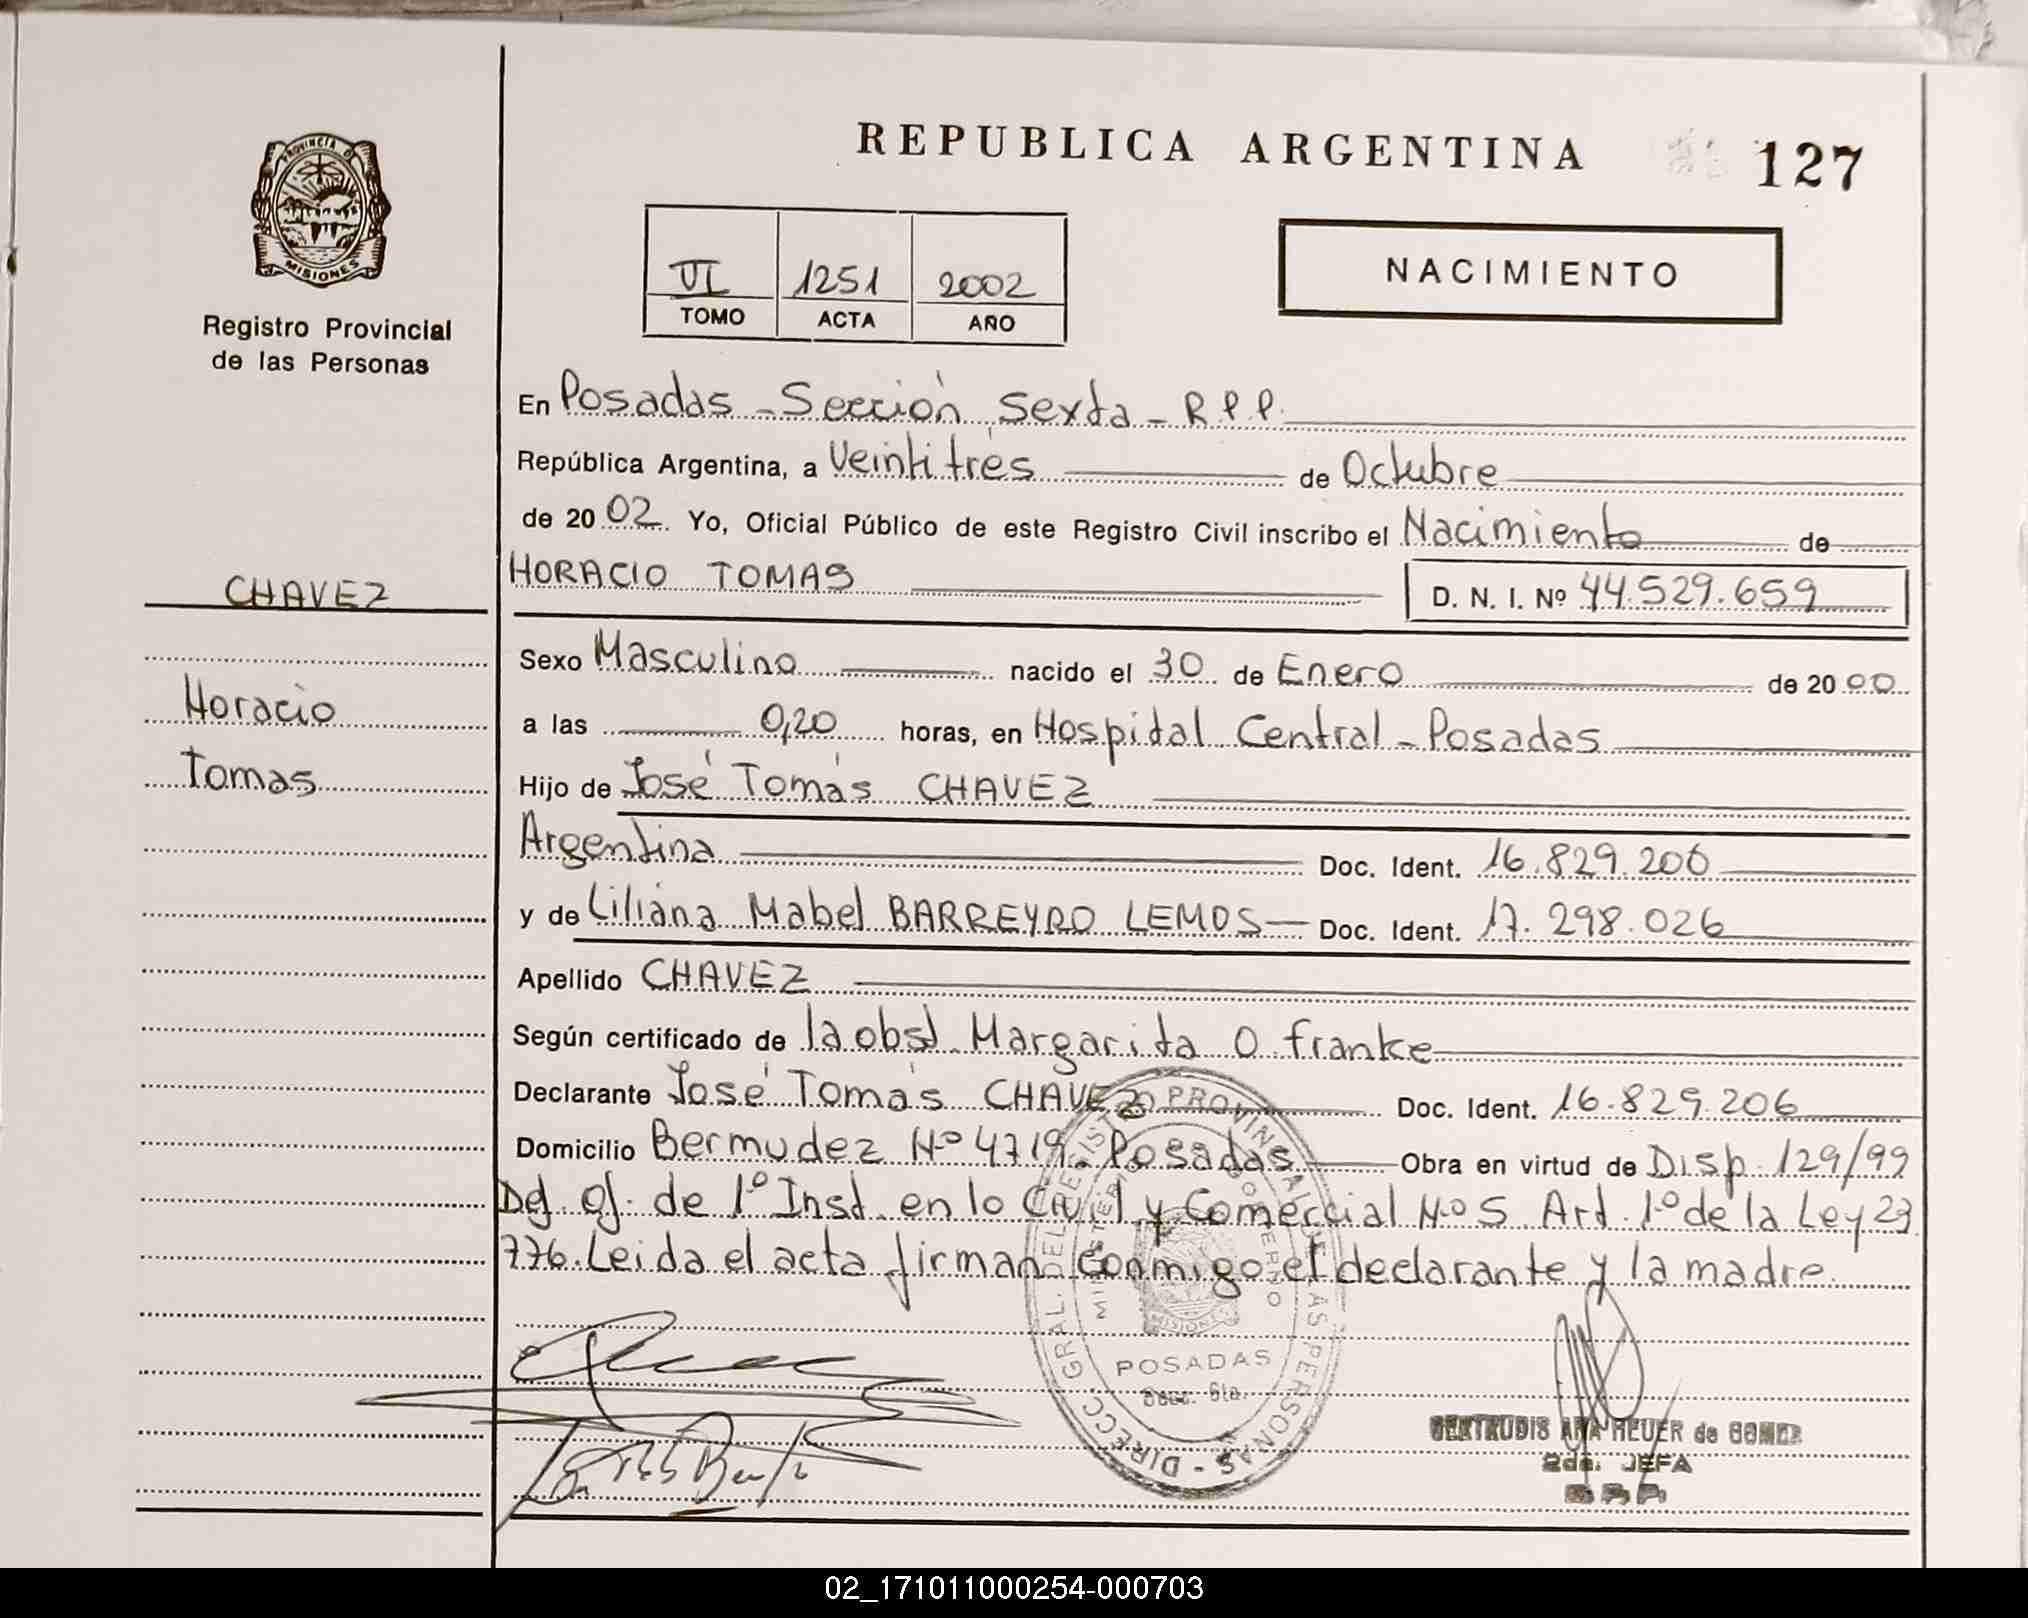 REPUBLICA ARGENTINA
127
PROVINCIA DE
MISIONES
Registro Provincial
de las Personas
VI 1251 2002
TOMO ACTA AÑO
NACIMIENTO
En Posadas - Sección Sexta - R.P.P.
República Argentina, a Veintitrés de Octubre
de 2002. Yo, Oficial Público de este Registro Civil inscribo el Nacimiento de
CHAVEZ
HORACIO TOMAS D. N. I. Nº 44.529.659
Sexo Masculino nacido el 30 de Enero de 2000
Horacio
a las 0,20 horas, en Hospital Central - Posadas
Tomas
Hijo de José Tomás CHAVEZ
Argentina Doc. Ident. 16.829.206
y de Liliana Mabel BARREYRO LEMOS Doc. Ident. 17.298.026
Apellido CHAVEZ
Según certificado de la obst. Margarita O franke
Declarante José Tomás CHAVEZ Doc. Ident. 16.829.206
Domicilio Bermudez Nº 4719. Posadas Obra en virtud de Disp. 129/99
Def. Of. de 1º Inst. en lo Civil y Comercial Nº 5 Art. 1º de la Ley 23
776. Leida el acta firman conmigo el declarante y la madre.
DIRECC. GRAL. DEL REGISTRO PROVINCIAL DE LAS PERSONAS
MINISTERIO GOBIERNO
MISIONES
POSADAS
Secc. 6ta.
GERTRUDIS ANA HEUER de GOMEZ
2da. JEFA
R.P.P.
02_171011000254-000703